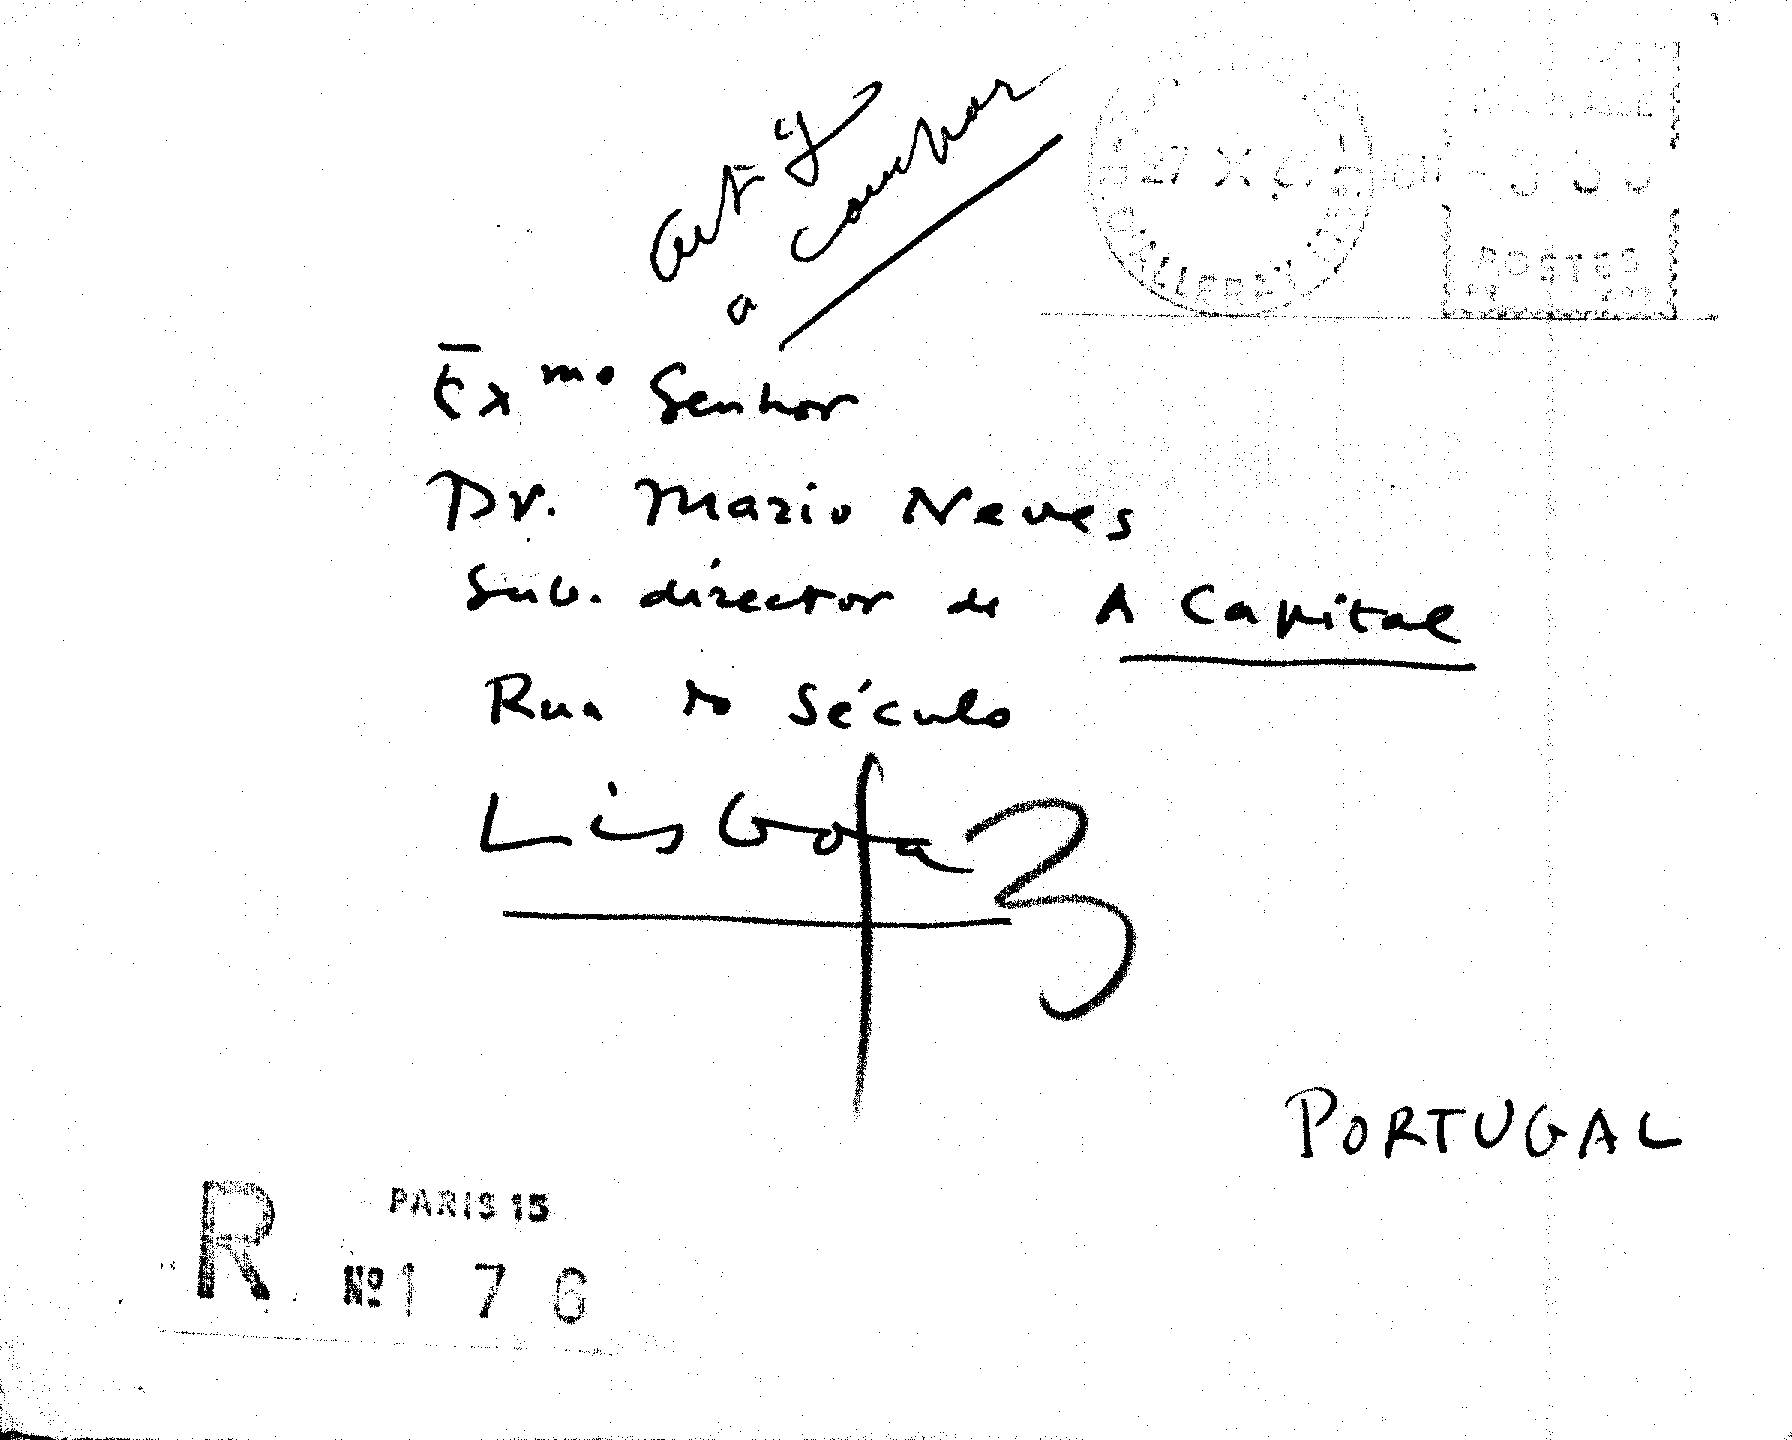 a compor
27 X
POSTES
Exmo Senhor
Dr. Mario Neves
Sub. director de A Capital
Rua do Século
Lisboa 3
PORTUGAL
R PARIS 15
Nº 1 7 6